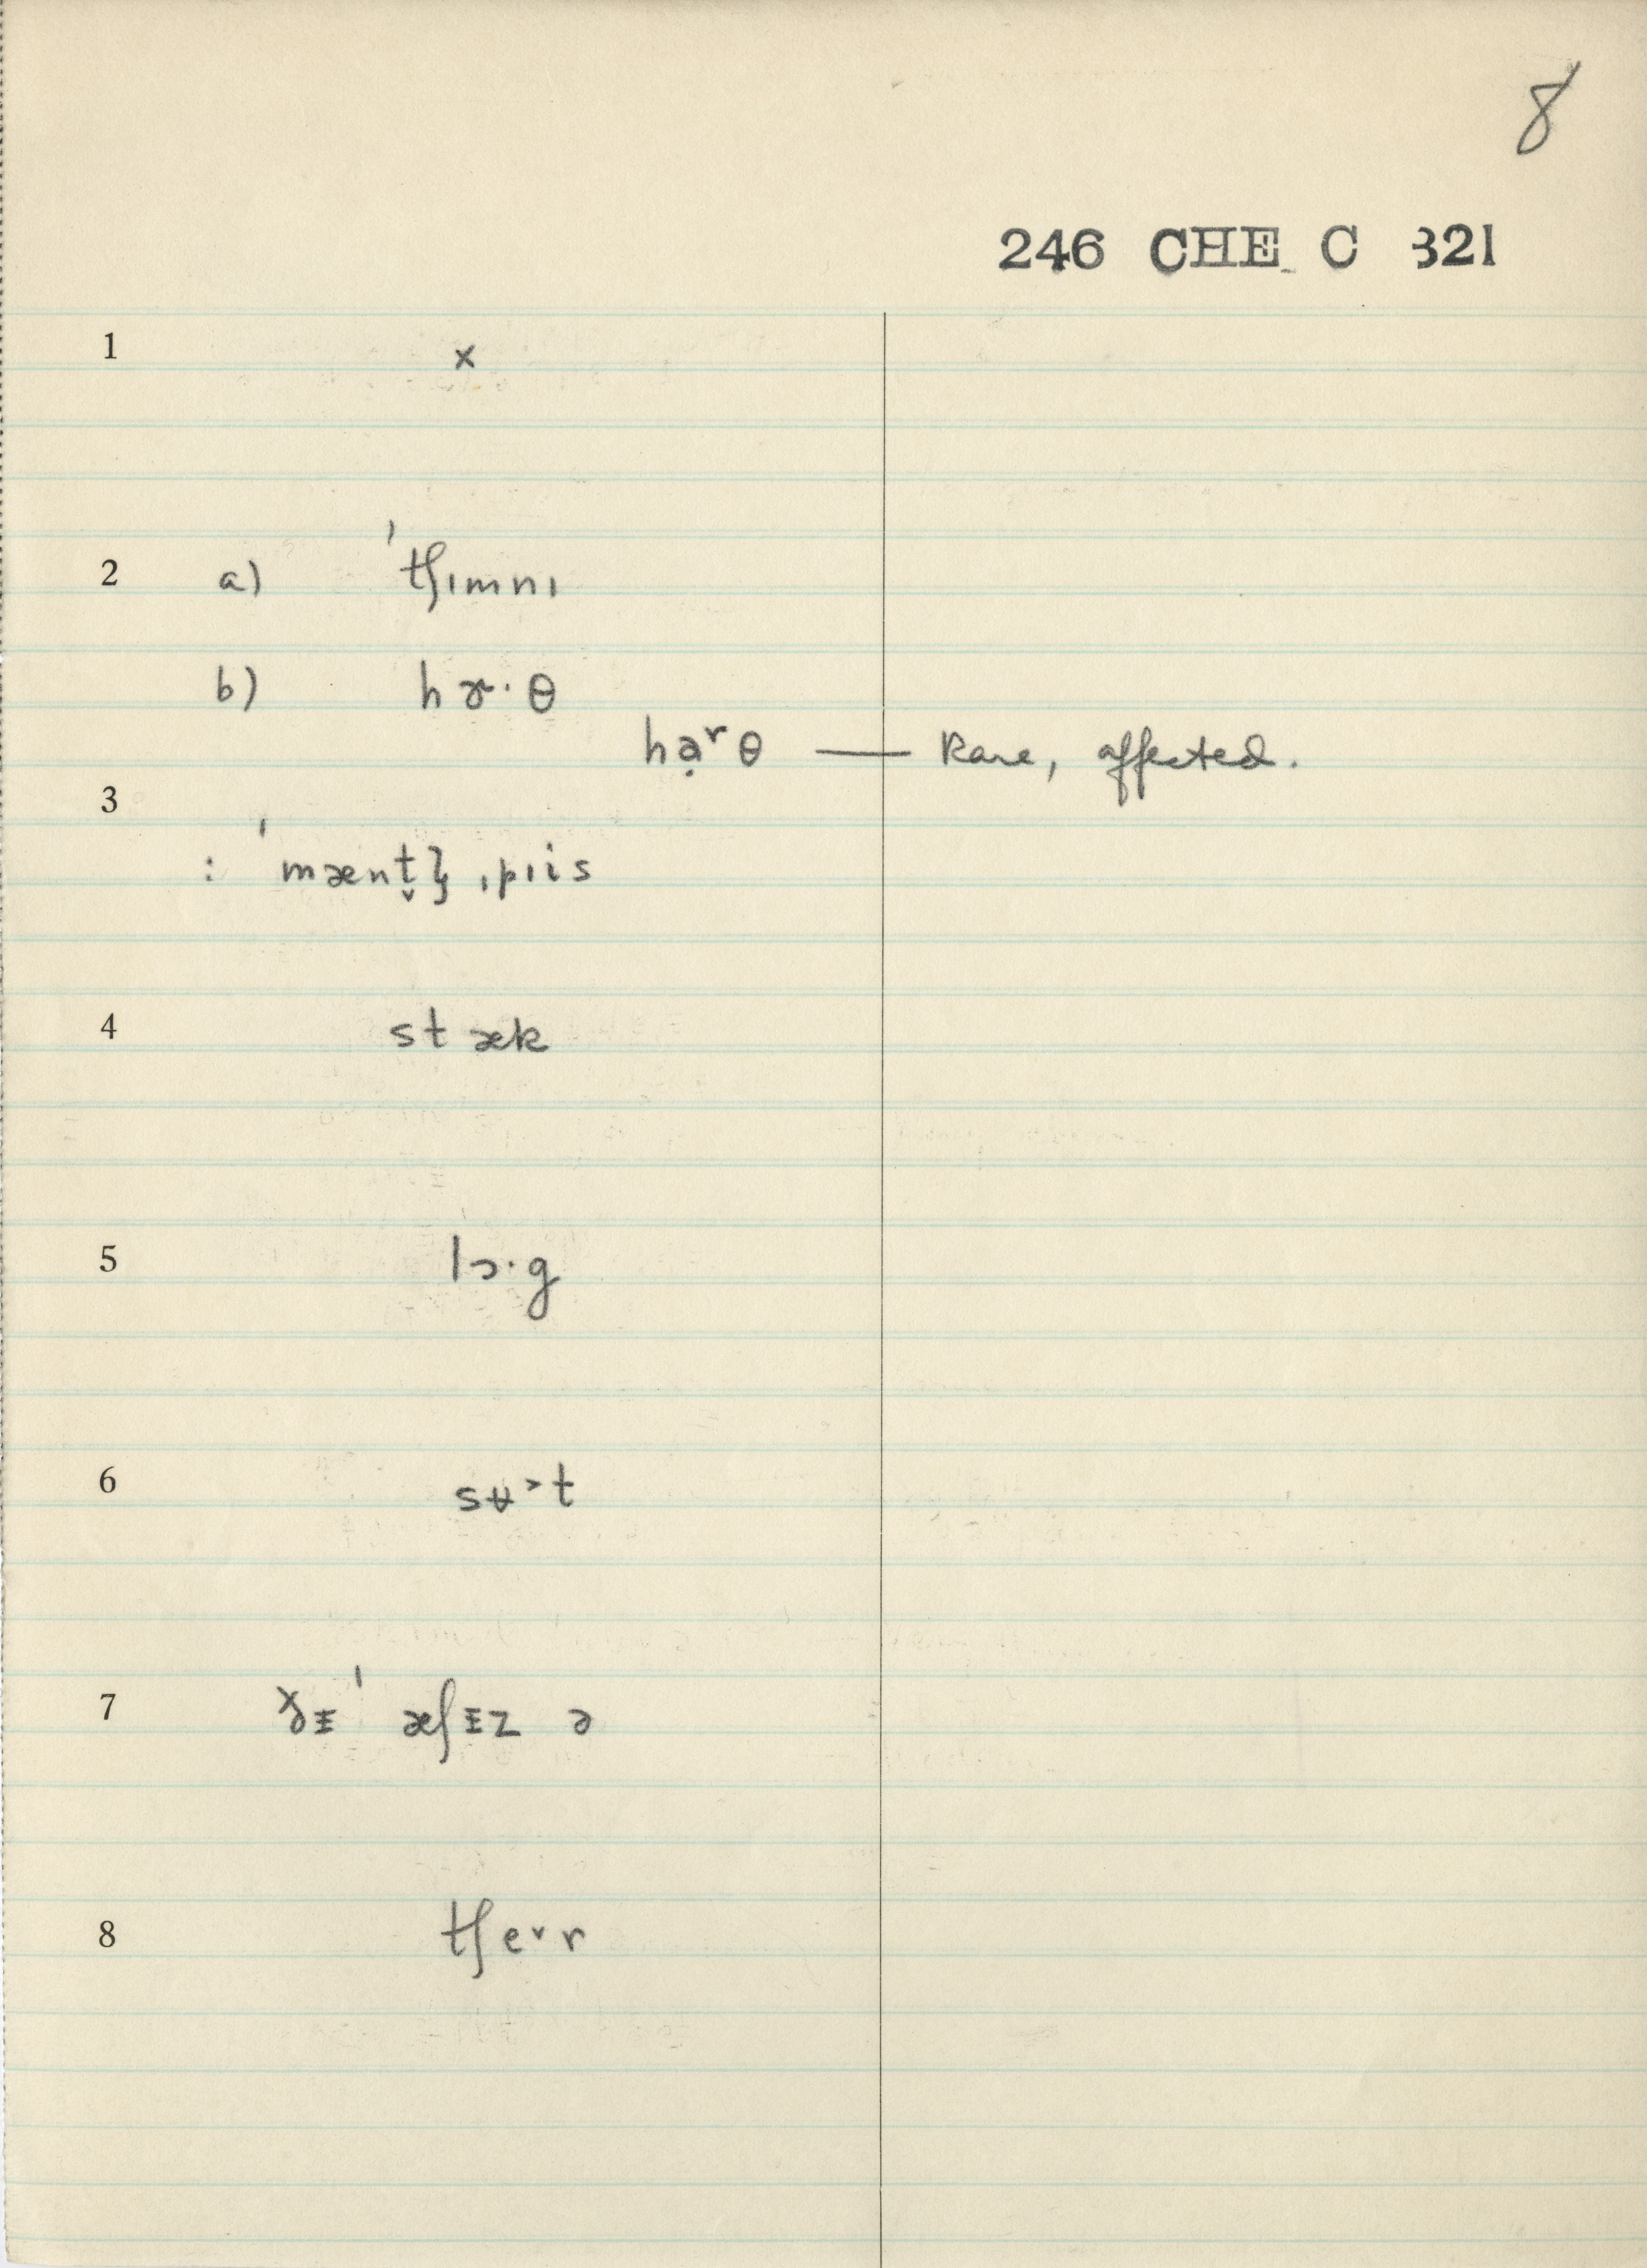 8
246 CHE C 321
1 x
2 a) ˈtʃɪmnɪ
b) hɚ·θ
haʳ̣θ — Rare, affected.
3
: ˈmænt̬ɮ ˌpɪis
4 stæk
5 lɔ·g
6 sʉ˃t
7 ðɪ ˈæʃɪz ə
8 tʃe˅r